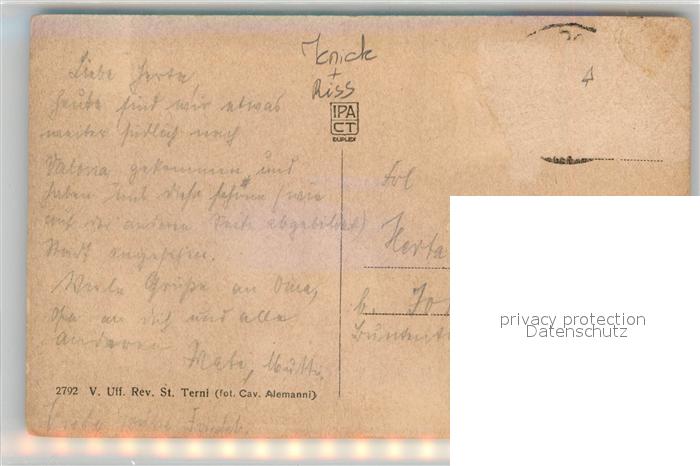 Knick
+
Riss
IPA
CT
DUPLEX
Liebe Herta,
heute sind wir etwas
weiter südlich nach
gekommen und
haben uns diese schöne (wie
auf der anderen Seite abgebildet)
Stadt angesehen.
Viele Grüße an Oma,
Opa an dich und alle
Anderen
Mutti
Frl
Herta
b.
2792 V. Uff. Rev. St. Terni (fot. Cav. Alemanni)
privacy protection
Datenschutz